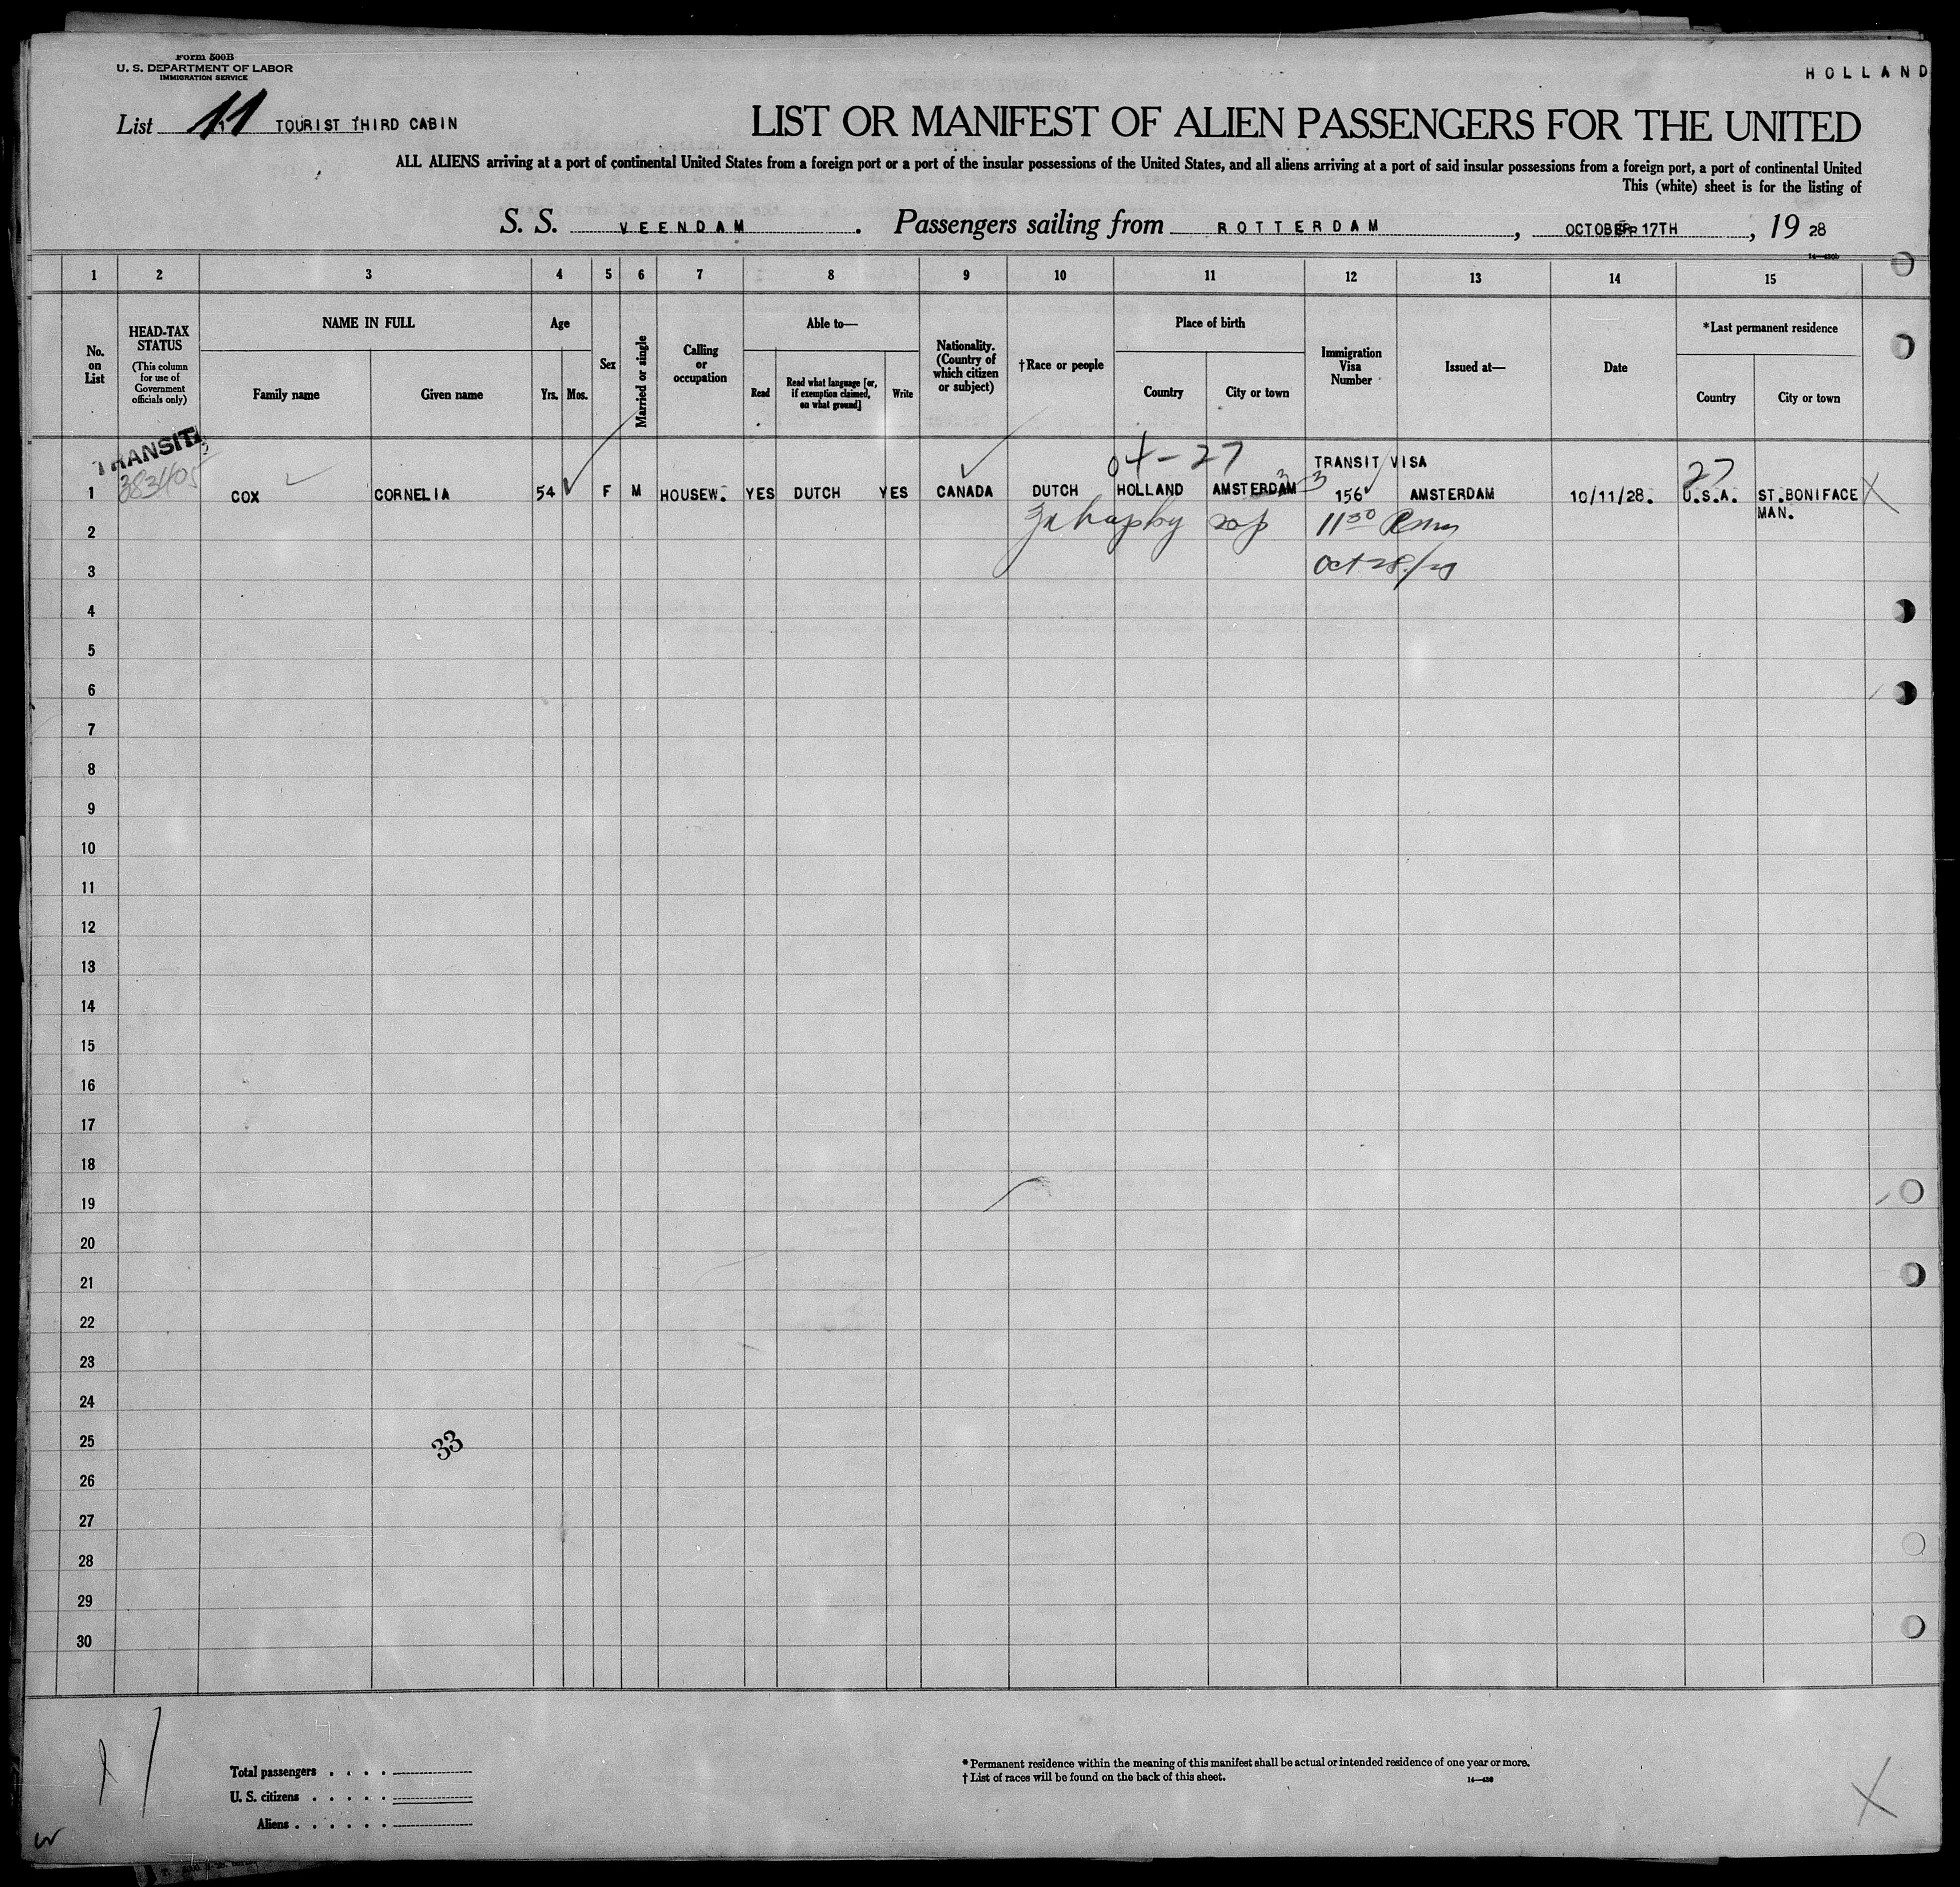 Form 500B
U. S. DEPARTMENT OF LABOR
IMMIGRATION SERVICE
HOLLAND
List 11 TOURIST THIRD CABIN
LIST OR MANIFEST OF ALIEN PASSENGERS FOR THE UNITED
ALL ALIENS arriving at a port of continental United States from a foreign port or a port of the insular possessions of the United States, and all aliens arriving at a port of said insular possessions from a foreign port, a port of continental United
This (white) sheet is for the listing of
S. S. VEENDAM. Passengers sailing from ROTTERDAM, OCTOBER 17TH, 19 28
14—430b
1 2 3 4 5 6 7 8 9 10 11 12 13 14 15
No. on List
HEAD-TAX STATUS
(This column for use of Government officials only)
NAME IN FULL
Family name Given name
Age
Yrs. Mos.
Sex
Married or single
Calling or occupation
Able to—
Read Read what language [or, if exemption claimed, on what ground] Write
Nationality. (Country of which citizen or subject)
†Race or people
Place of birth
Country City or town
Immigration Visa Number
Issued at—
Date
*Last permanent residence
Country City or town
TRANSIT
383405
04-27
TRANSIT VISA
27
1 COX CORNELIA 54 F M HOUSEW. YES DUTCH YES CANADA DUTCH HOLLAND AMSTERDAM 3 3 156 AMSTERDAM 10/11/28. U.S.A. ST.BONIFACE
MAN.
2 11 30
3 Oct 28/28
4
5
6
7
8
9
10
11
12
13
14
15
16
17
18
19
20
21
22
23
24
25
33
26
27
28
29
30
Total passengers . . . .
U. S. citizens . . . . .
Aliens . . . . . .
* Permanent residence within the meaning of this manifest shall be actual or intended residence of one year or more.
† List of races will be found on the back of this sheet.
14—430